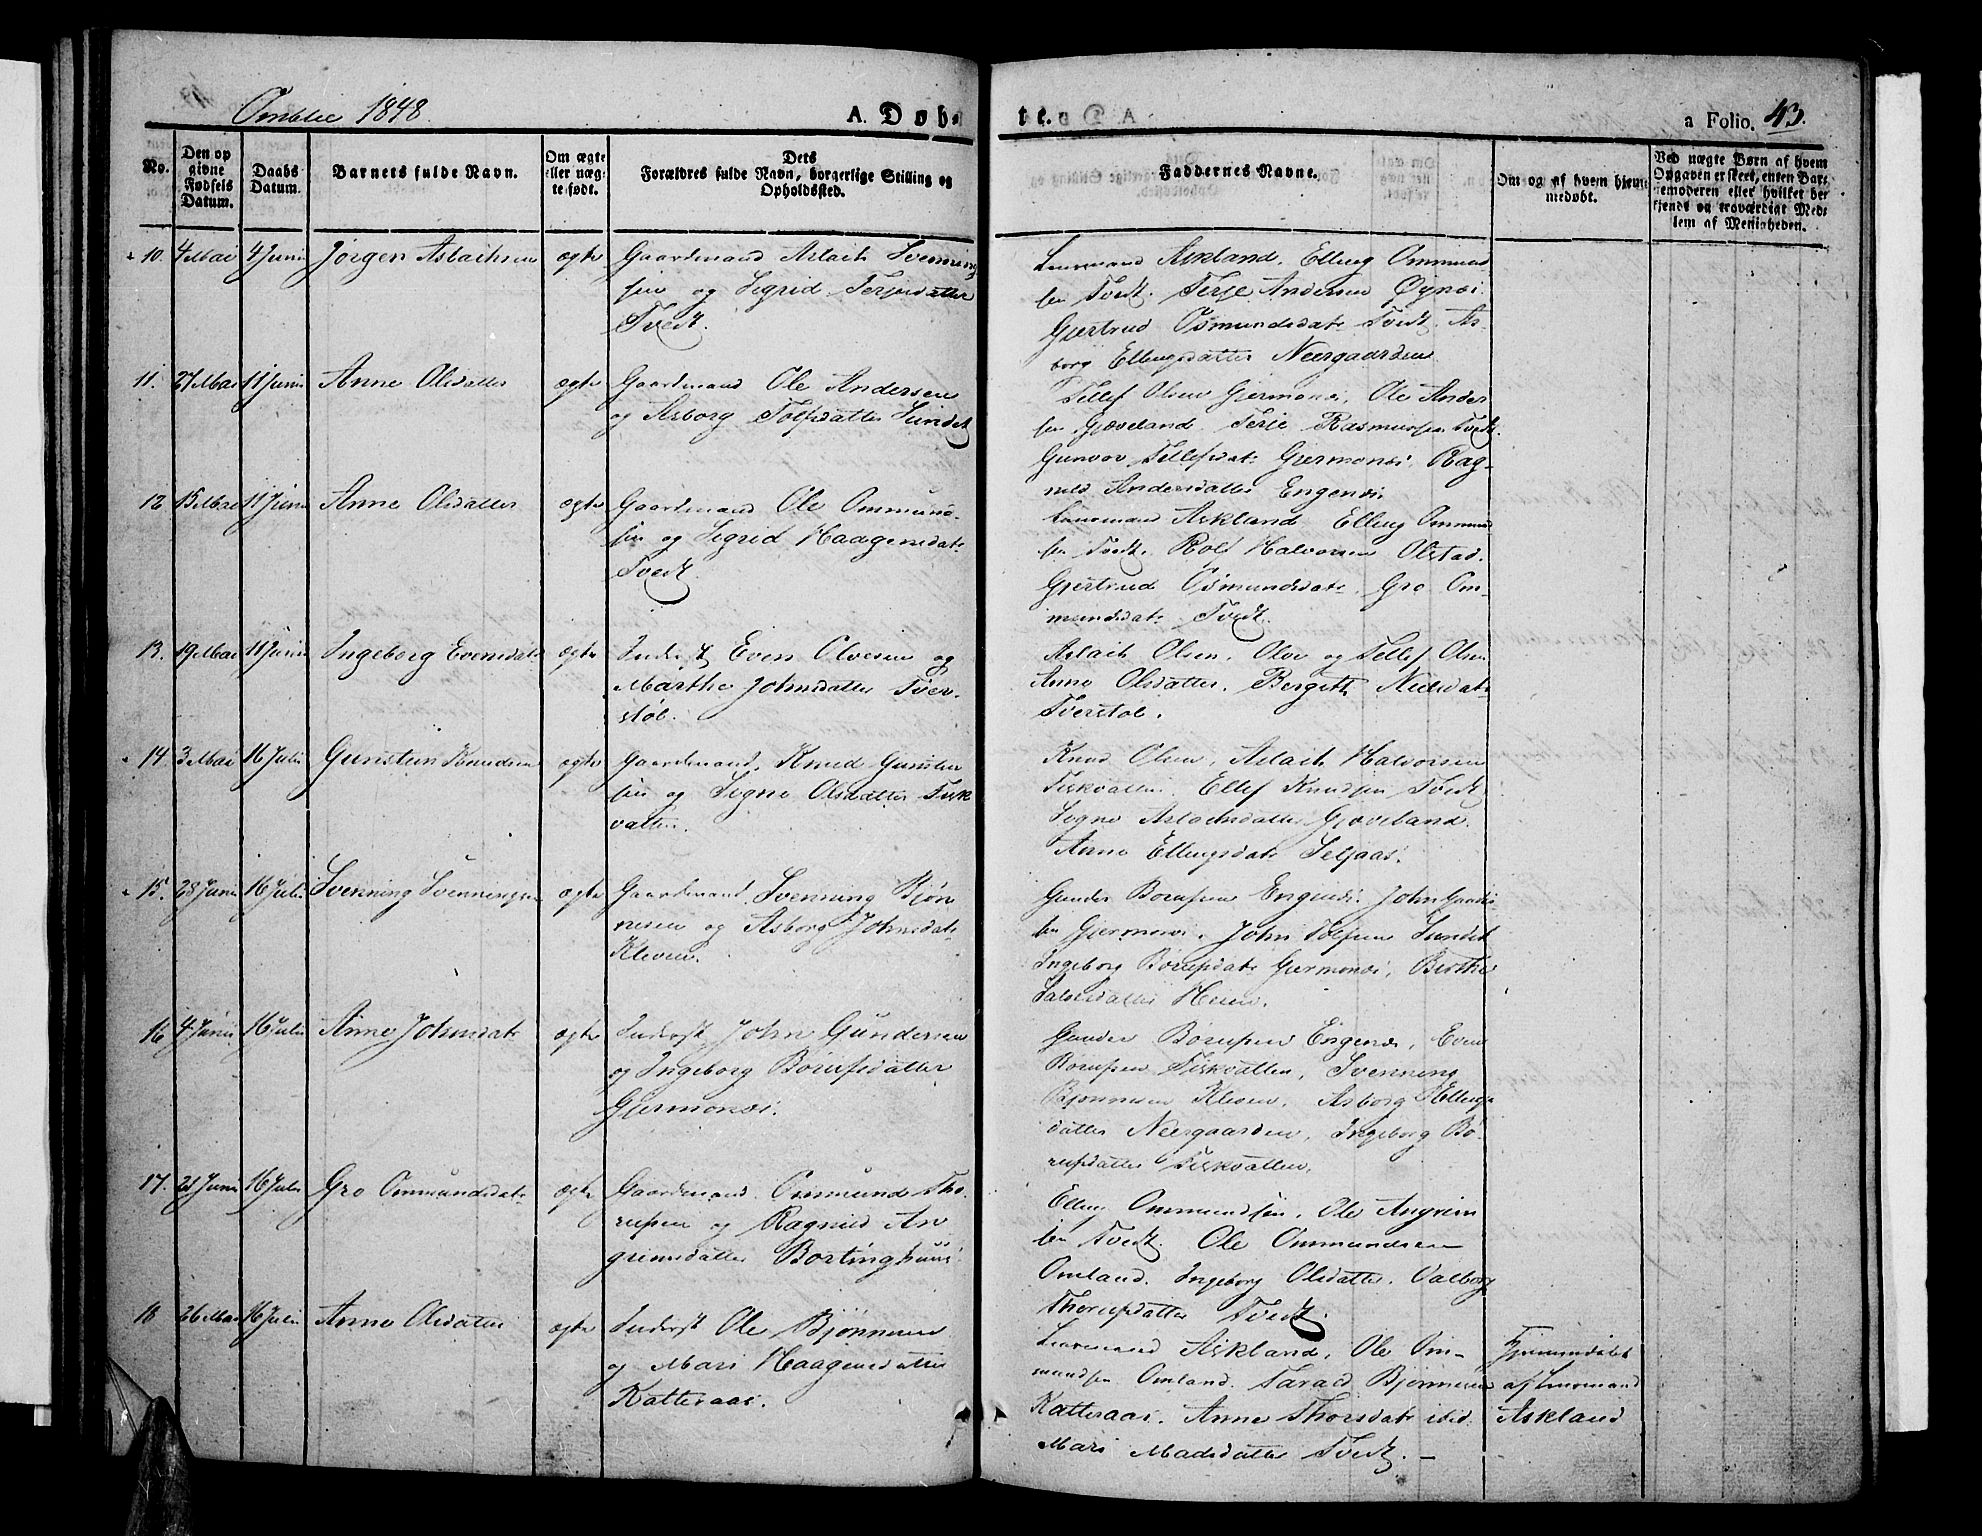 Omblie 1848.
A. Døb-
te.
a Folio. 43.
No.
Den op
givne
Fødsels
Datum.
Daabs
Datum.
Barnets fulde Navn.
Om ægte
eller uæg-
te født.
Dets
Forældres fulde Navn, borgerlige Stilling og
Opholdssted.
Faddernes Navne.
Om og af hvem hjem-
medøbt.
Ved uægte Børn af hvem
Opgaven er skeet, enten Bar-
nemoderen eller hvilket be-
kjendt og troværdigt Med-
lem af Menigheden.
10. 4 Mai 4 Juni Jørgen Aslachsen ægte Gaardmand Aslach Svenning
sen og Sigrid Terjesdatter
Tvedt.
Lensmand Askland. Elling Ommund
sen Tvedt. Terje Andersen Øynæs.
Gjertrud Osmundsdatr Tvedt. As-
borg Ellingsdatter Neergaarden
11. 27 Mai 11 Juni Anne Olsdatter ægte Gaardmand Ole Andersen
og Asborg Tolfsdatter Sundet
Tellef Olsen Gjermonæs, Ole Ander
sen Gjæveland. Terje Rasmussen Tvedt.
Gunvor Tellefsdatr Gjermonæs. Rag-
nild Andersdatter Engenæs.
12 15 Mai 11 Juni Anne Olsdatter ægte Gaardmand Ole Ommund-
sen og Sigrid Haagensdatr
Tvedt.
Lensmand Askland Elling Ommund
sen Tvedt. Rolf Halvorsen Olstad.
Gjertrud Osmundsdatr. Gro Om-
mundsdatr Tvedt.
13. 19 Mai 11 Juni Ingeborg Evensdatr ægte Inderst Even Olvesen og
Marthe Johnsdatter Tver-
støl.
Aslach Olsen. Olov og Tellef Olsen
Anne Olsdatter. Bergith Nielsdatr
Tverstøl.
14. 3 Mai 16 Juli Gunsten Knudsen ægte Gaardmand. Knud Gunsten
sen og Signe Olsdatter Fisk
vatten.
Knud Olsen, Aslach Halvorsen
Fiskvatten. Ellef Knudsen Tvedt
Signe Aslachsdatter Gjæveland.
Anne Ellingsdatr Seljaas.
15. 28 Juni 16 Juli Svenning Svenningsen ægte Gaardmand. Svenning Bjøn
nesen og Asborg Johnsdatr
Kleven.
Gunder Børufsen Engenæs. John Gunder
sen Gjermonæs. John Tolfsen Sundet
Ingeborg Børufsdatr Gjermonæs, Birthe
16 4 Juni 16 Juli Anne Johnsdatr ægte Inderst John Gundersen
og Ingeborg Børufsdatter
Gjermonæs.
Gunder Børufsen Engenæs, Even
Børufsen Fiskvatten, Svenning
Bjønnesen Kleven, Asborg Ellings
datter Neergaarden, Ingeborg Bø-
rufsdatter Fiskvatten.
17. 21 Juni 16 Juli Gro Ommundsdatr ægte Gaardmand. Ommund Tho-
rufsen og Ragnild An
grimsdatter Bortinghuus.
Elling Ommundsen. Ole Angrim
sen Tvedt. Ole Ommundsen
Omland. Ingeborg Olsdatter. Valborg
Thorufsdatter Tvedt.
18 26 Mai 16 Juli Anne Olsdatter ægte Inderst Ole Bjønnesen
og Mari Haagensdatter
Katteraas.
Lensmand Askland. Ole Om-
mundsen Omland. Tarald Bjønnesen
Katteraas. Anne Thorsdatr ibid.
Mari Madsdatter Tvedt. —
Hjemmedøbt
af Lensmand
Askland